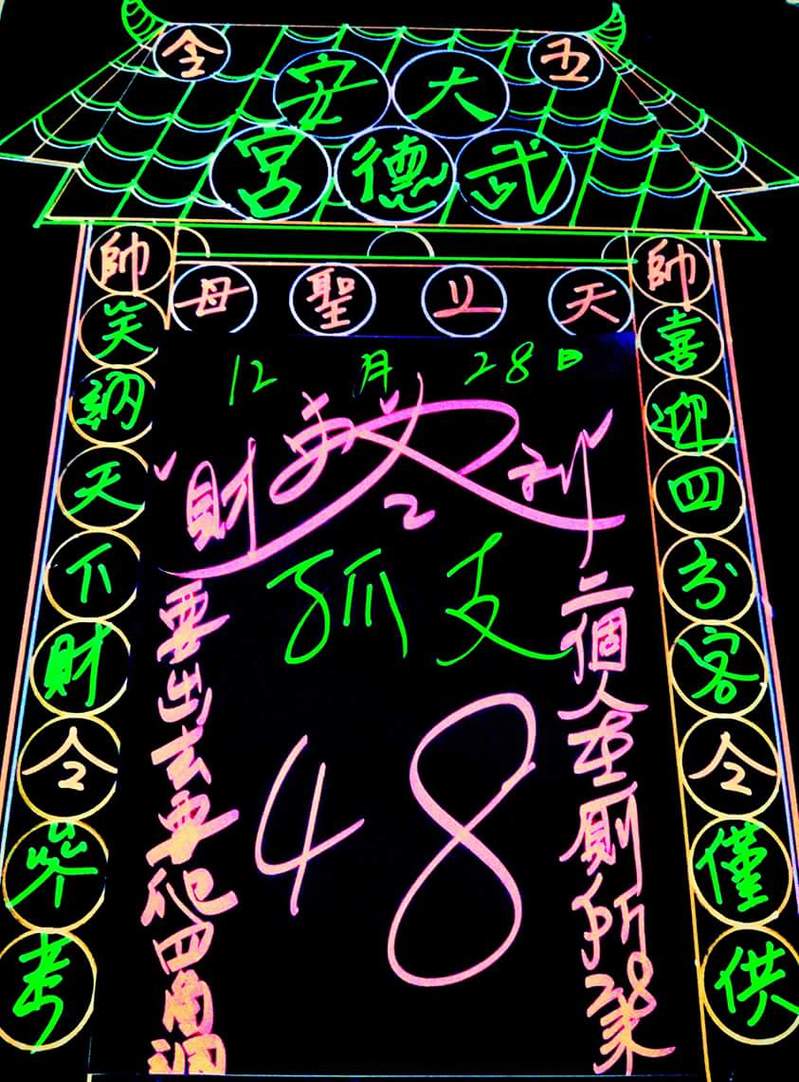 五 全
大安
武德宮
天上聖母
帥喜迎四方客令僅供
帥笑納天下財令參考
12月28日
財 利
孤支
48
二個人在廁所
要出去要爬四角洞